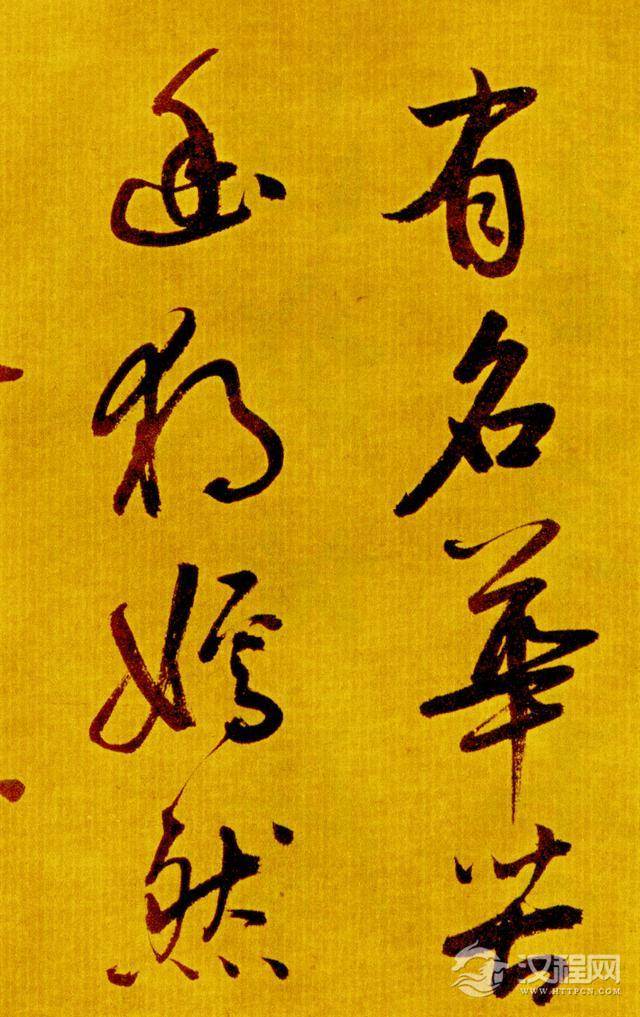 有名華苦
幽獨嫣然
汉程网
WWW.HTTPCN.COM